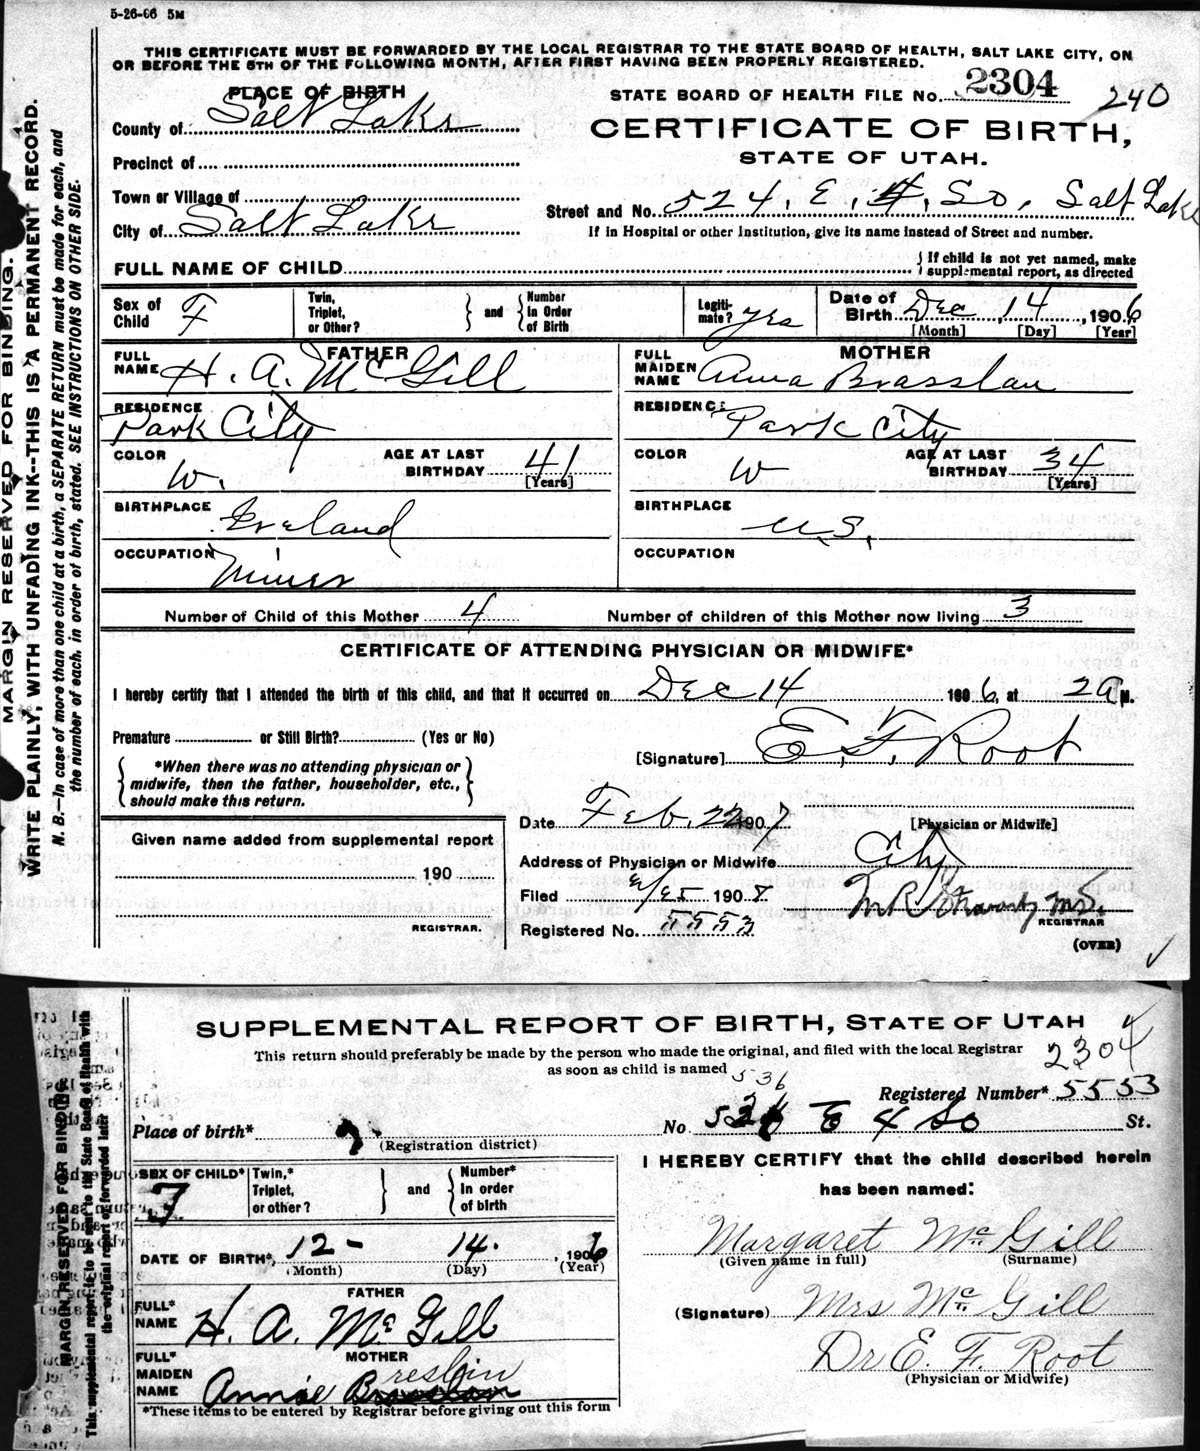 5-26-06 5M
THIS CERTIFICATE MUST BE FORWARDED BY THE LOCAL REGISTRAR TO THE STATE BOARD OF HEALTH, SALT LAKE CITY, ON
OR BEFORE THE 5TH OF THE FOLLOWING MONTH, AFTER FIRST HAVING BEEN PROPERLY REGISTERED.
PLACE OF BIRTH
STATE BOARD OF HEALTH FILE No. 2304 240
County of Salt Lake
CERTIFICATE OF BIRTH,
STATE OF UTAH.
Precinct of
Town or Village of
Street and No. 524, E, 4, So, Salt Lake
City of Salt Lake
If in Hospital or other Institution, give its name instead of Street and number.
FULL NAME OF CHILD
{ If child is not yet named, make
supplemental report, as directed
Sex of Child F
Twin, Triplet, or Other? } and { Number In Order of Birth
Legiti-mate? yes
Date of Birth Dec 14, 1906
[Month] [Day] [Year]
FATHER
FULL NAME H. A. McGill
MOTHER
FULL MAIDEN NAME Anna Brasslan
RESIDENCE Park City
RESIDENCE Park City
COLOR W. AGE AT LAST BIRTHDAY 41 [Years]
COLOR W AGE AT LAST BIRTHDAY 34 [Years]
BIRTHPLACE Ireland
BIRTHPLACE U.S.
OCCUPATION Miner
OCCUPATION
Number of Child of this Mother 4 Number of children of this Mother now living 3
CERTIFICATE OF ATTENDING PHYSICIAN OR MIDWIFE*
I hereby certify that I attended the birth of this child, and that it occurred on Dec 14 1906, at 2 a M.
Premature or Still Birth? (Yes or No)
[Signature] E. F. Root
{ *When there was no attending physician or
midwife, then the father, householder, etc.,
should make this return. }
Date Feb. 22 1907
[Physician or Midwife]
Given name added from supplemental report
190
REGISTRAR.
Address of Physician or Midwife City
Filed 2/25 1907
REGISTRAR
Registered No. 5553
(OVER)
MARGIN RESERVED FOR BINDING.
WRITE PLAINLY, WITH UNFADING INK--THIS IS A PERMANENT RECORD.
N. B.—In case of more than one child at a birth, a SEPARATE RETURN must be made for each, and
the number of each, in order of birth, stated. SEE INSTRUCTIONS ON OTHER SIDE.
SUPPLEMENTAL REPORT OF BIRTH, STATE OF UTAH
This return should preferably be made by the person who made the original, and filed with the local Registrar
as soon as child is named
2304
536
Registered Number* 5553
Place of birth* No E 4 So St.
(Registration district)
SEX OF CHILD* F
Twin,* Triplet, or other? } and { Number* In order of birth
I HEREBY CERTIFY that the child described herein
has been named:
DATE OF BIRTH* 12- 14. , 1906
(Month) (Day) (Year)
Margaret McGill
(Given name in full) (Surname)
FATHER
FULL* NAME H. A. McGill
(Signature) Mrs McGill
Dr E. F. Root
(Physician or Midwife)
MOTHER
FULL* MAIDEN NAME Annie Breslin
*These items to be entered by Registrar before giving out this form
MARGIN RESERVED FOR BINDING
This supplemental report is to be sent to the State Board of Health with
the original report or forwarded later